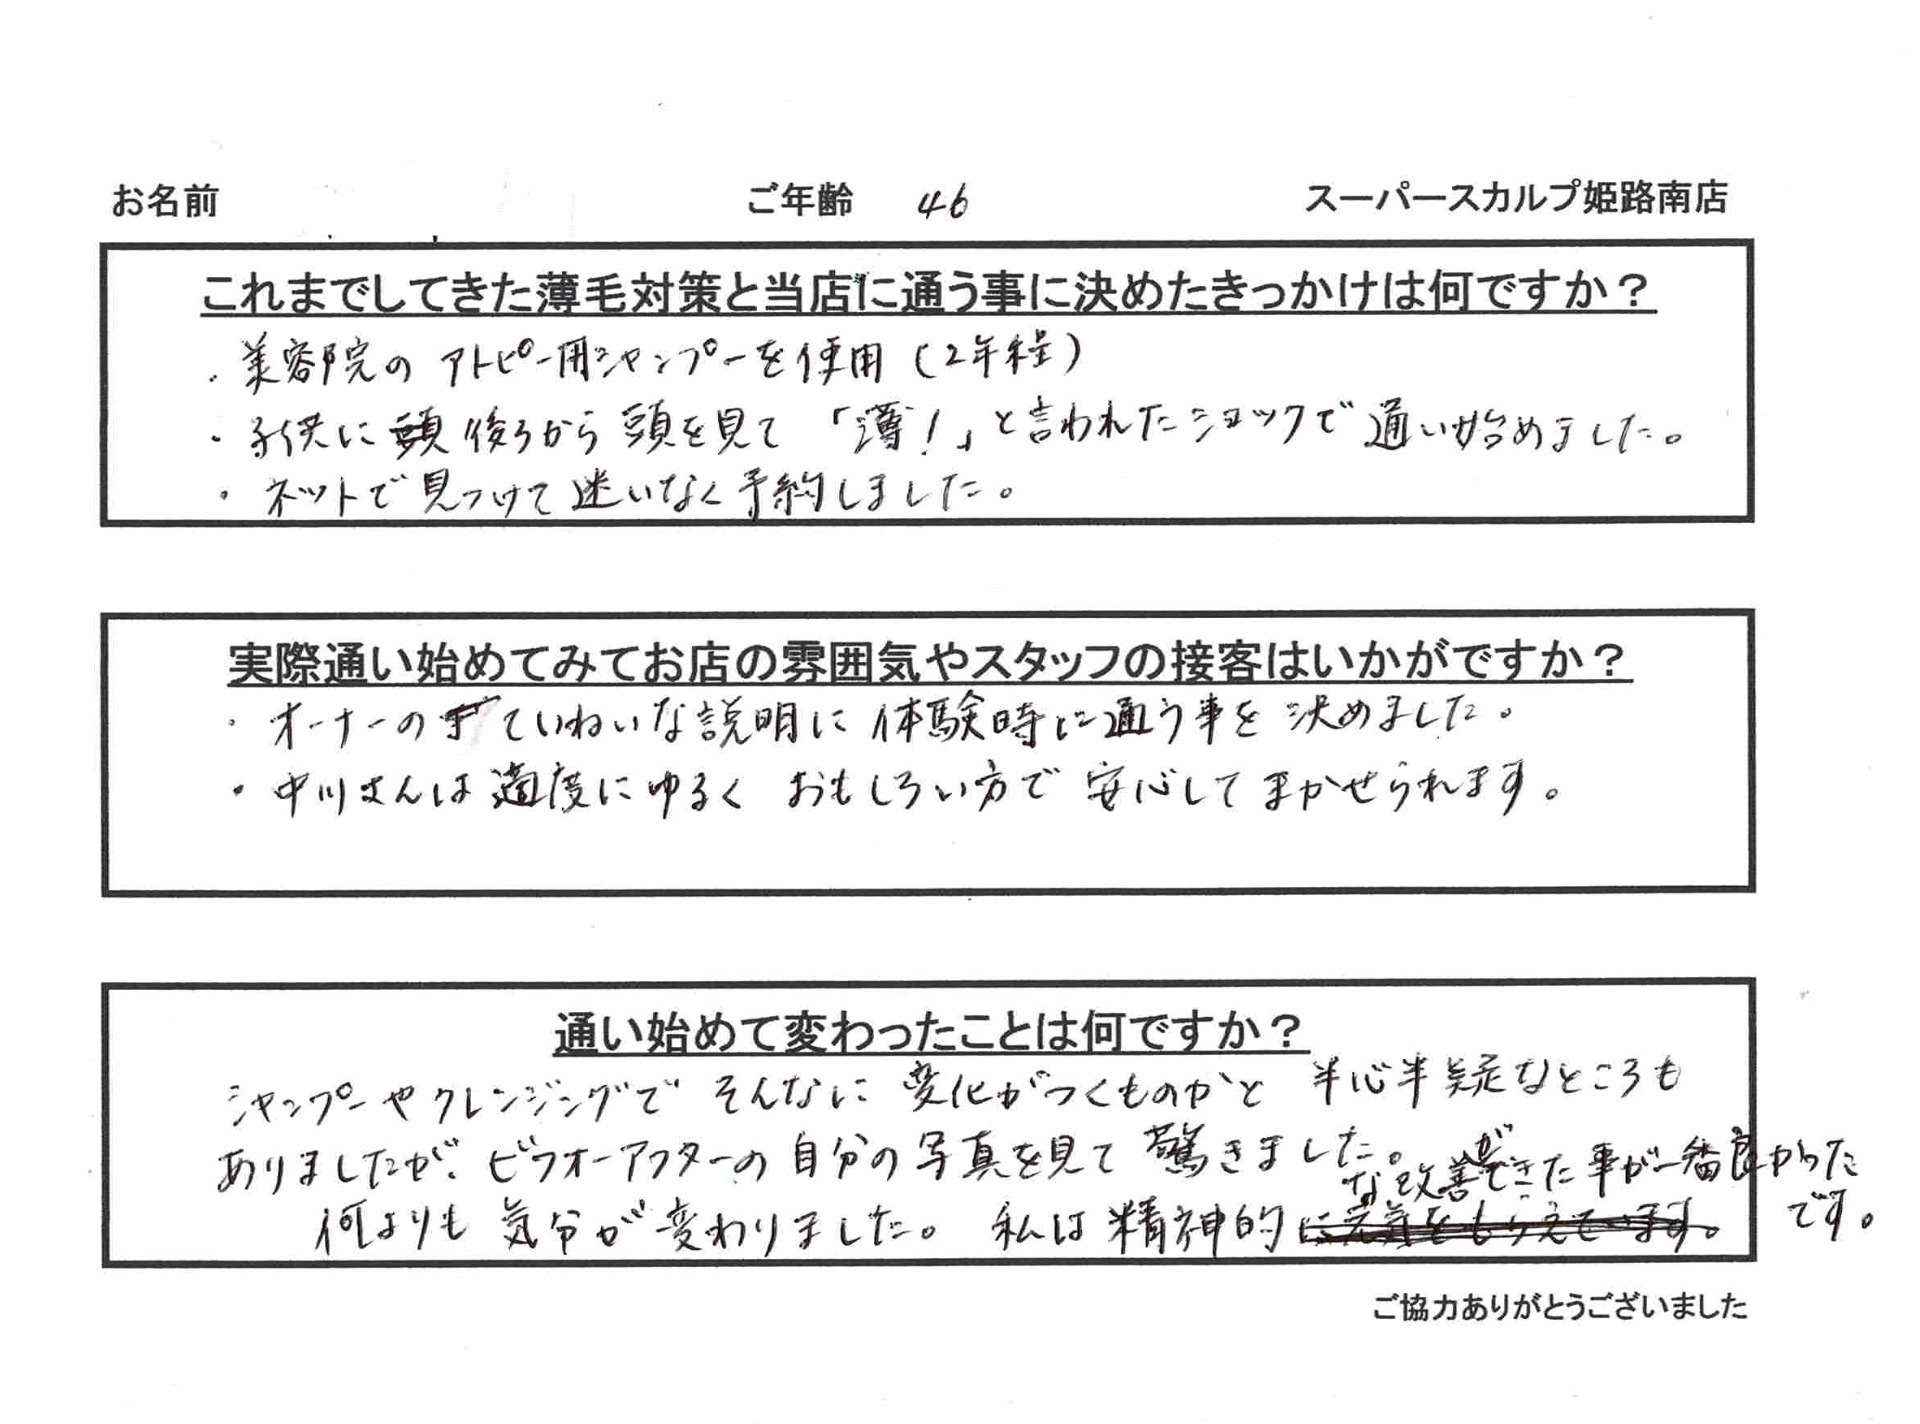 お名前 ご年齢 46 スーパースカルプ姫路南店
これまでしてきた薄毛対策と当店に通う事に決めたきっかけは何ですか？
・美容院の アトピー用シャンプーを使用（2年程）
・子供に 頭 後ろから 頭を見て 「薄！」と言われたショックで通い始めました。
・ネットで見つけて迷いなく予約しました。
実際通い始めてみてお店の雰囲気やスタッフの接客はいかがですか？
・オーナーの ていねいな説明に 体験時に通う事を 決めました。
・中川さんは適度にゆるく おもしろい方で 安心してまかせられます。
通い始めて変わったことは何ですか？
シャンプーやクレンジングで そんなに 変化がつくものかと 半心半疑なところも
ありましたが、ビフォーアフターの 自分の 写真を見て 驚きました。
な改善ができた事が一番良かった
何よりも 気分が変わりました。 私は 精神的に元気をもらえています。 です。
ご協力ありがとうございました